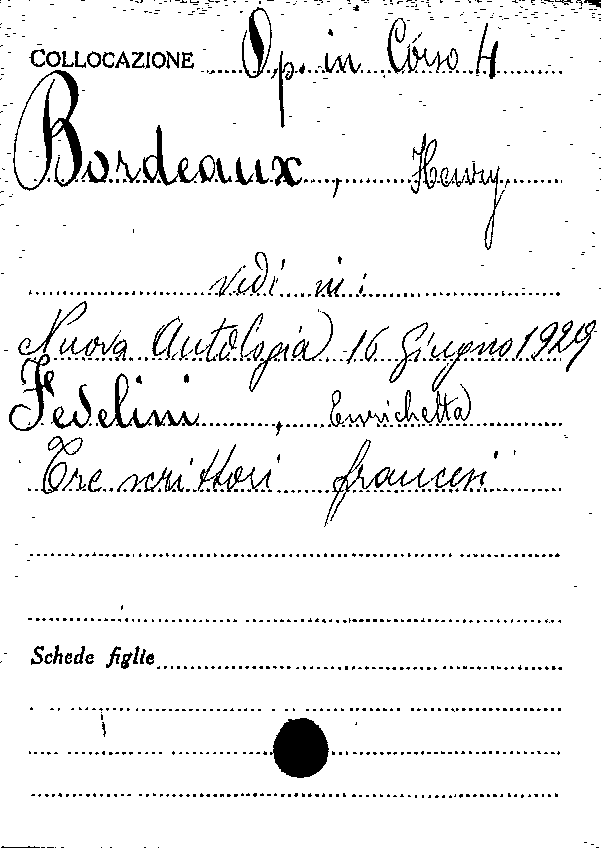 COLLOCAZIONE Op. in Corso 4
Bordeaux, Henry
vedi in:
Nuova Antologia 16 Giugno 1929
Fedelini, Enrichetta
Tre scrittori francesi
Schede figlie